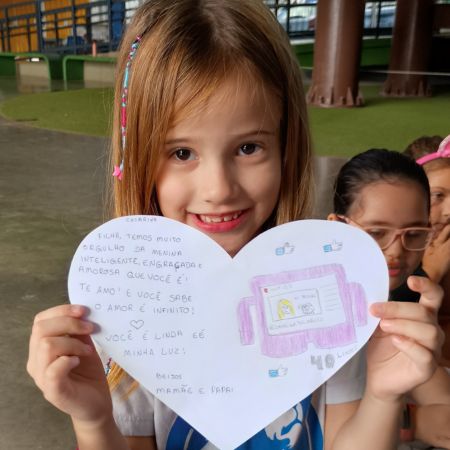 CATARINA
FILHA, TEMOS MUITO
ORGULHO DA MENINA
INTELIGENTE, ENGRAÇADA E
AMOROSA QUE VOCÊ É!
TE AMO! E VOCÊ SABE
O AMOR É INFINITO!
VOCÊ É LINDA E É
MINHA LUZ!
BEIJOS
MAMÃE E PAPAI
40 LIKES